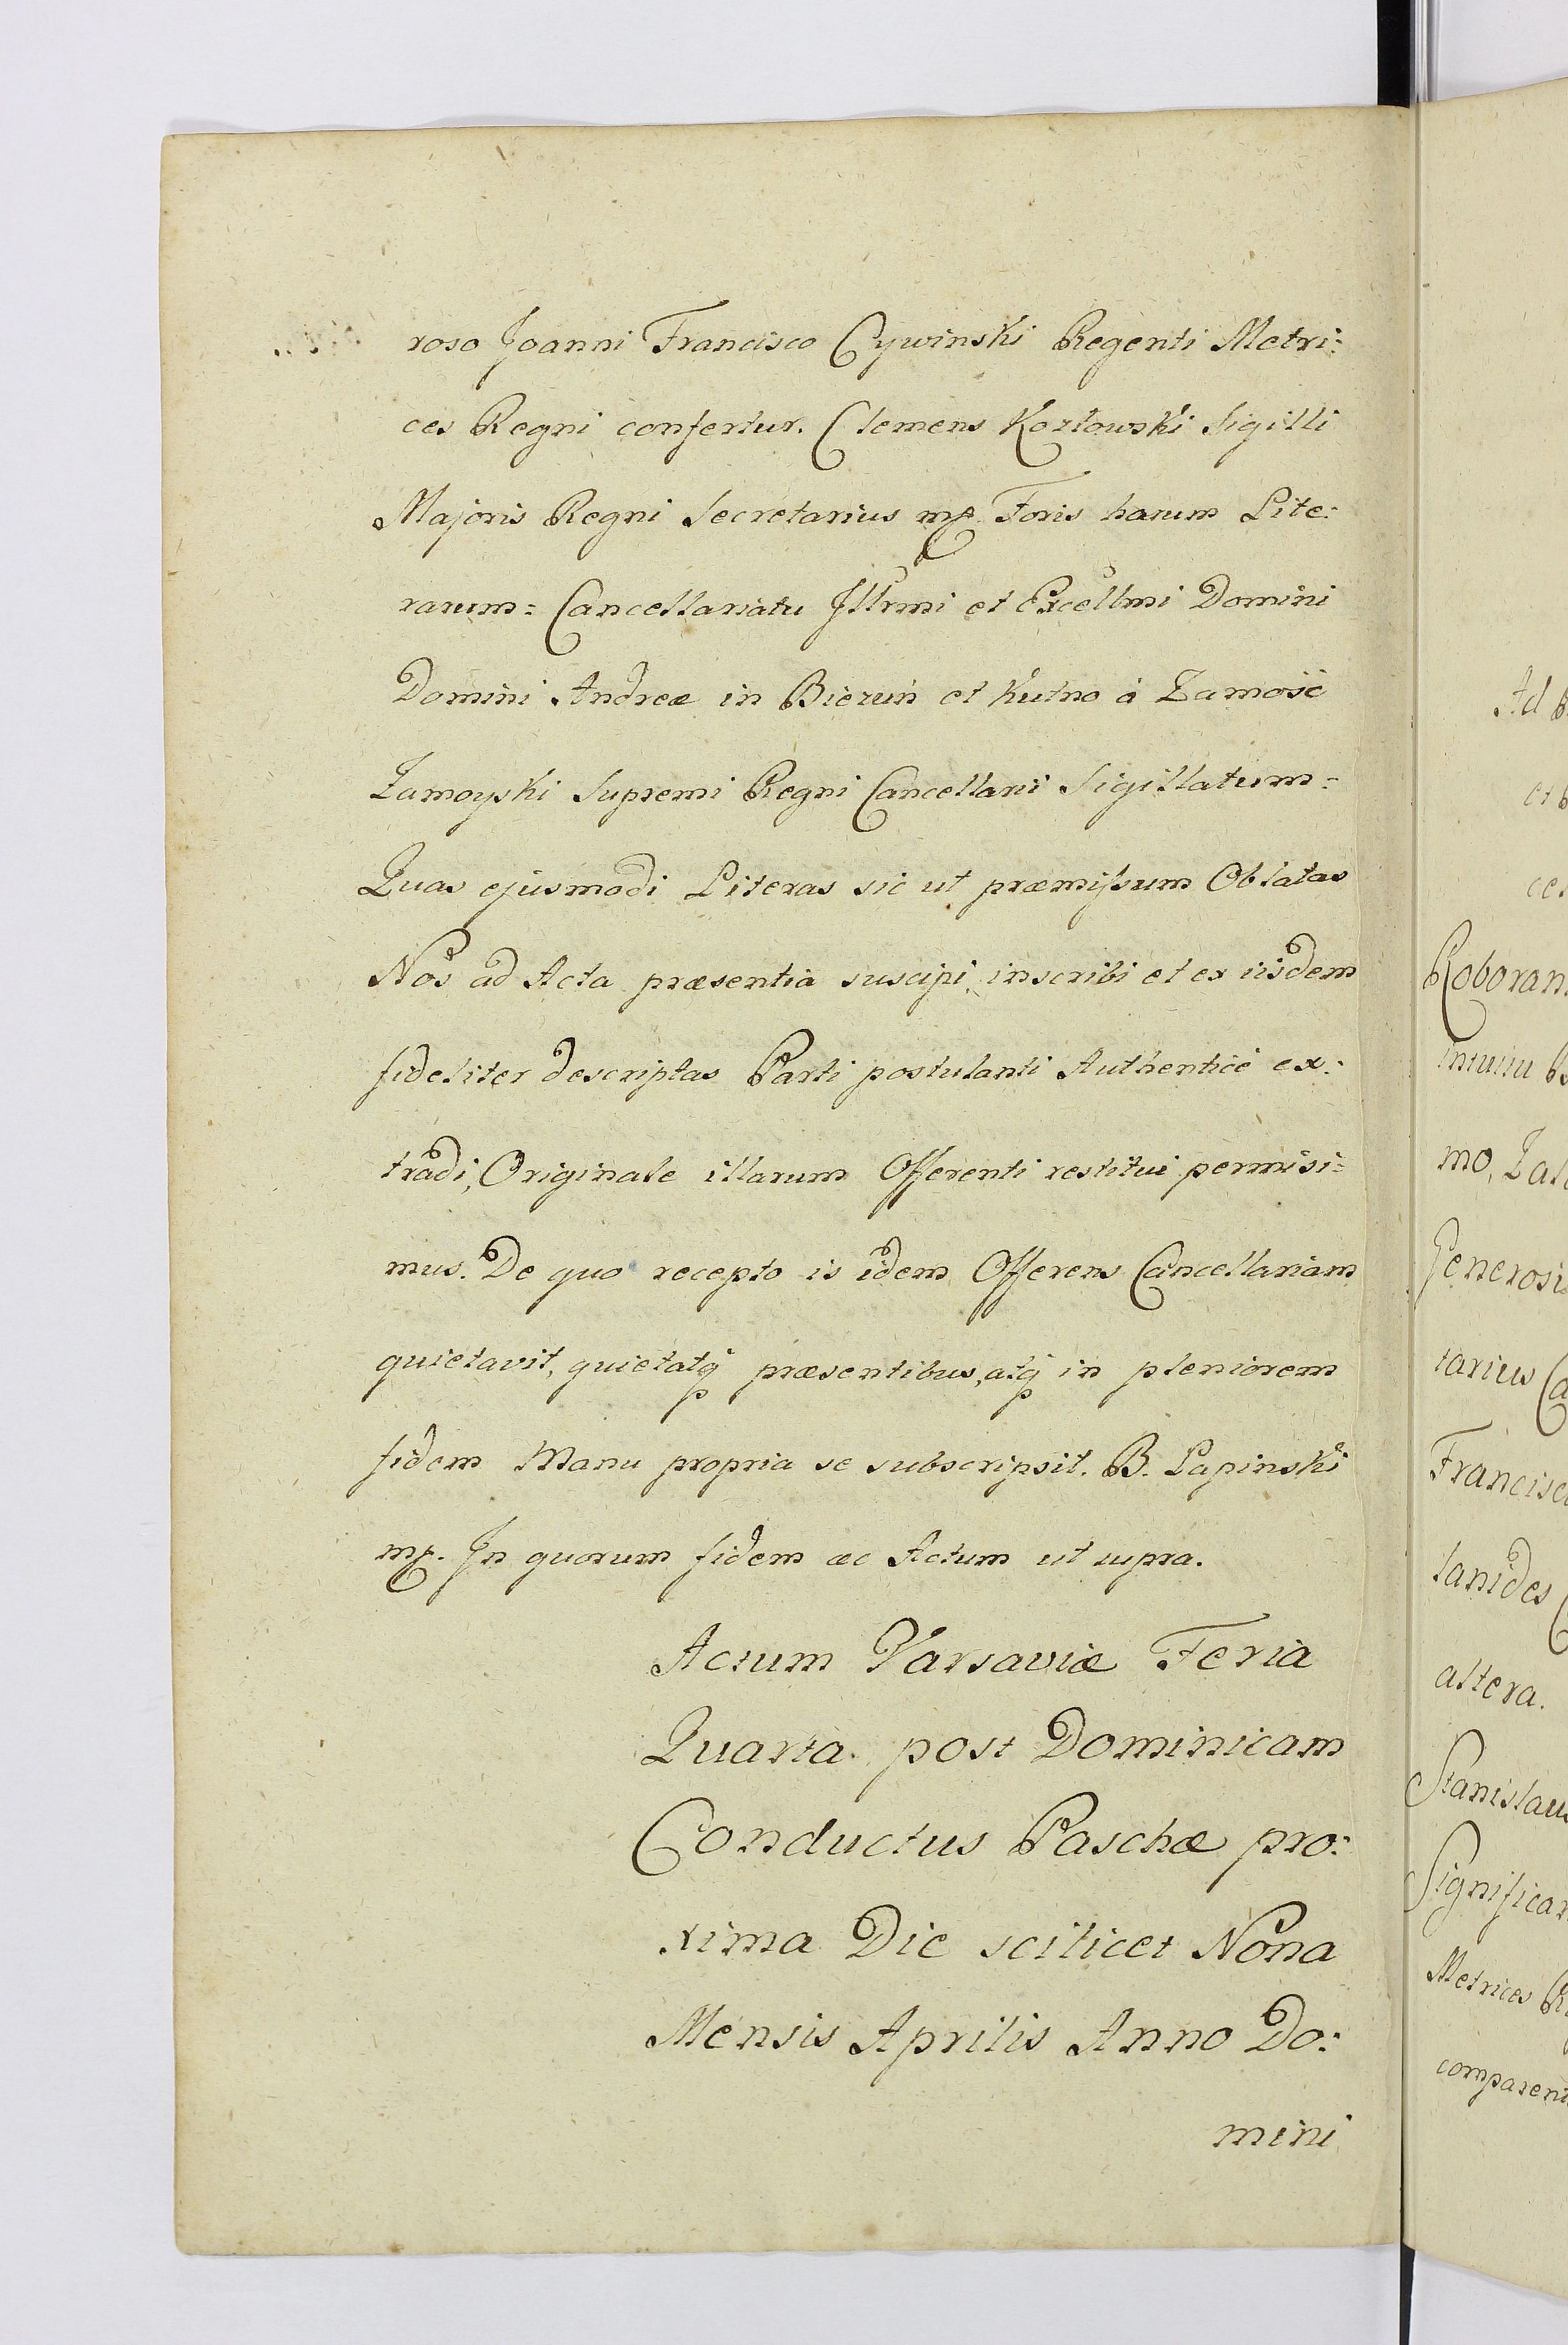 roso Joanni Francisco Cywinski Regenti Metri:
ces Regni confertur. Clemens Kozłowski Sigilli
Majoris Regni Secretarius mp. Foris harum Lite:
rarum: Cancellariatu Jllrmi et Excellmi Domini
Domini Andreæ in Bieżuń et Kutno à Zamość
Zamoyski Supremi Regni Cancellarii Sigillatum:
Quas ejusmodi Literas sic ut præmissum Oblatas
Nos ad Acta præsentia suscipi, inscribi et ex iisdem
fideliter descriptas Parti postulanti Authenticè ex:
tradi, Originale illarum Offerenti restitui permisi:
mus. De quo recepto is idem Offerens Cancellariam
quietavit, quietatq præsentibus, atq in pleniorem
fidem Manu propria se subscripsit. B. Lapinski
mp. Jn quorum fidem ac Actum ut supra.
Actum Varsaviæ Feria
Quarta post Dominicam
Conductus Paschæ pro:
xima Die scilicet Nona
Mensis Aprilis Anno Do:
mini
Ad
et
ces
Roboran
mo,
Generosi
tarius
Francisc
lanides
altera.
Stanislau
Significa
Metrices
comparen